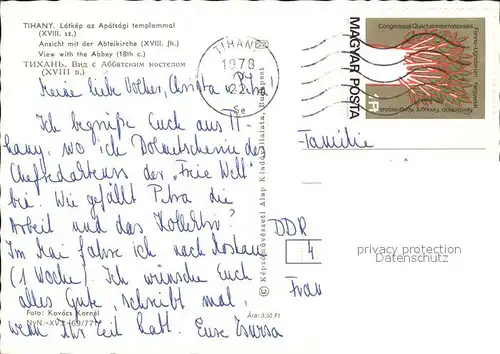 TIHANY. Látkép az Apátsági templommal
(XVIII. sz.)
Ansicht mit der Abteikirche (XVIII. Jh.)
View with the Abbey (18th c.)
ТИХАНЬ. Вид с Аббатским костелом
(XVIII в.)
TIHANY
1978
MAGYAR POSTA
Congressus Quartus Internationalis
Fenno-Ugristarum
Meine liebe
Ich begrüße Euch aus Ti-
hany, wo ich Dolmetscherin des
der „Freie Welt"
bin. Wie gefällt Petra die
Arbeit und das Kollektiv?
Im Mai fahre ich nach Rostow
(1 Woche). Ich wünsche Euch
alles Gute, schreibt mal,
wenn Ihr Zeit habt. Eure Zsuzsa
Familie
DDR
4
Frau
privacy protection
Datenschutz
© Képzőművészeti Alap Kiadóvállalata, Budapest
Ára: 3,50 Ft
Foto: Kovács Kornél